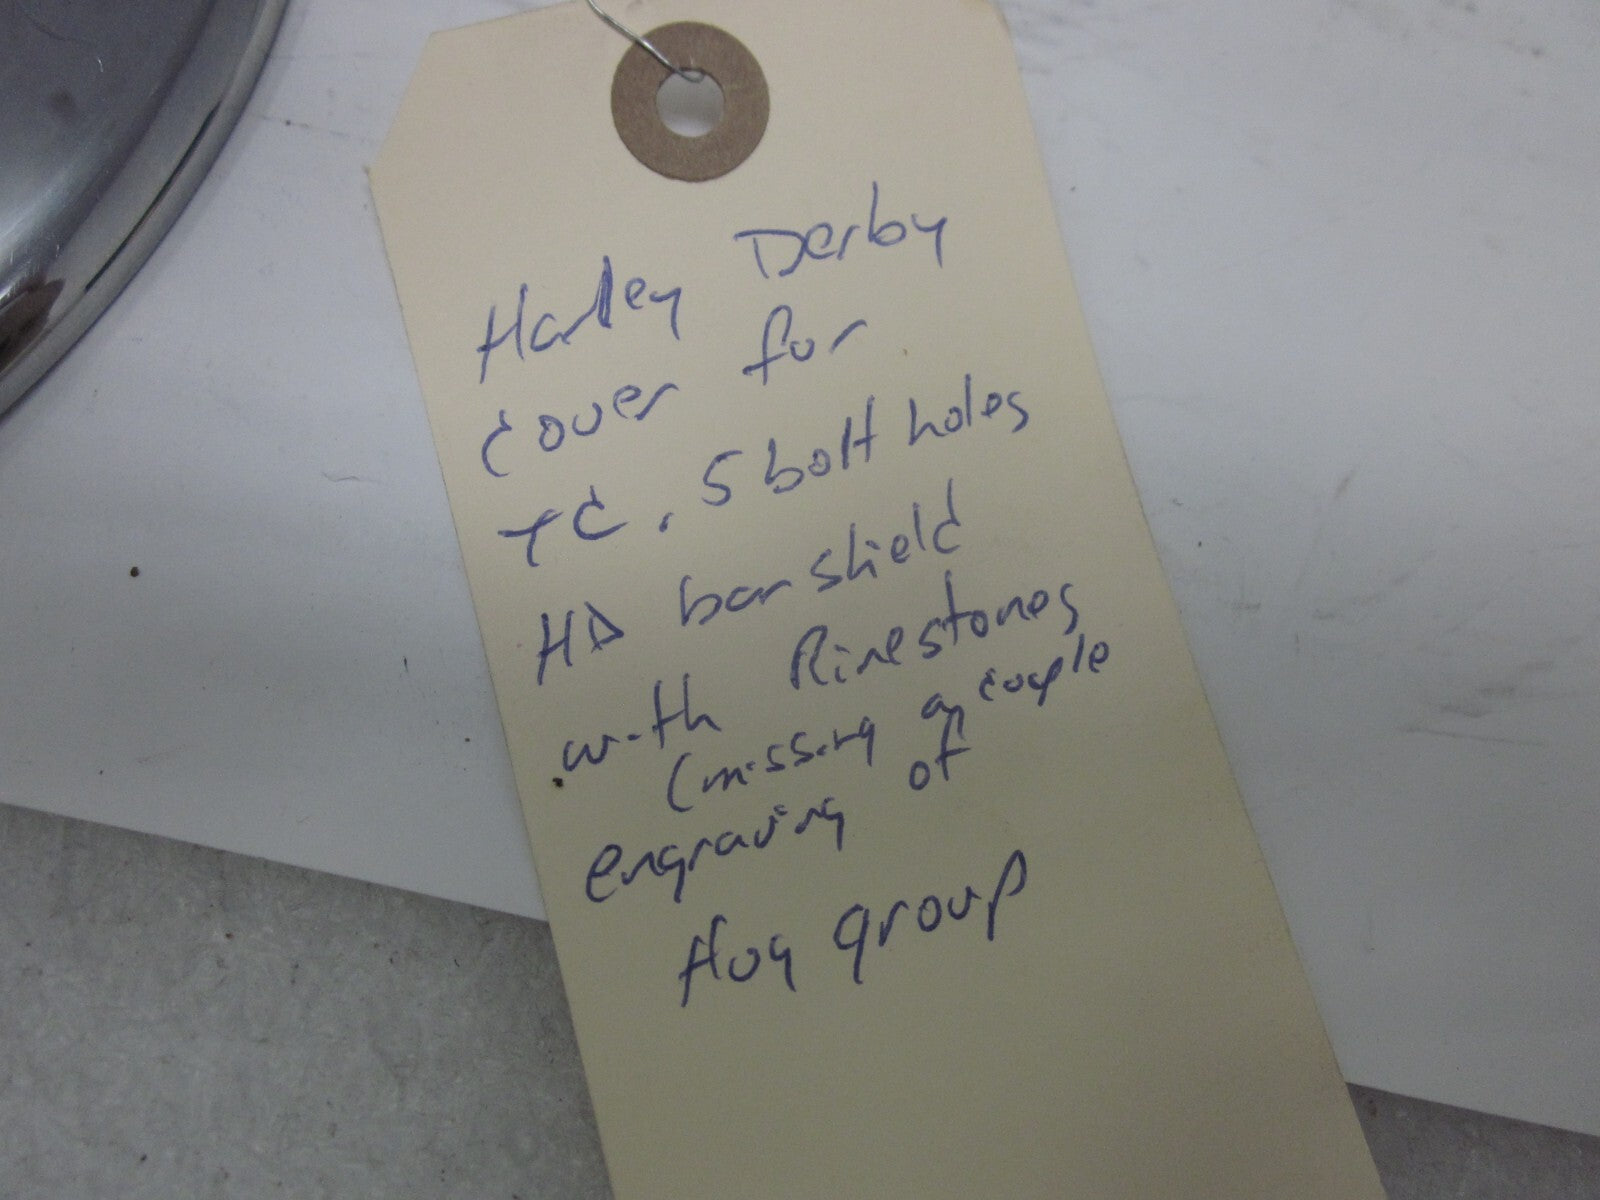 Harley Derby
cover for
TC. 5 bolt holes
HD bar shield
with Rinestones
(missing a couple
engraving of
Hog group